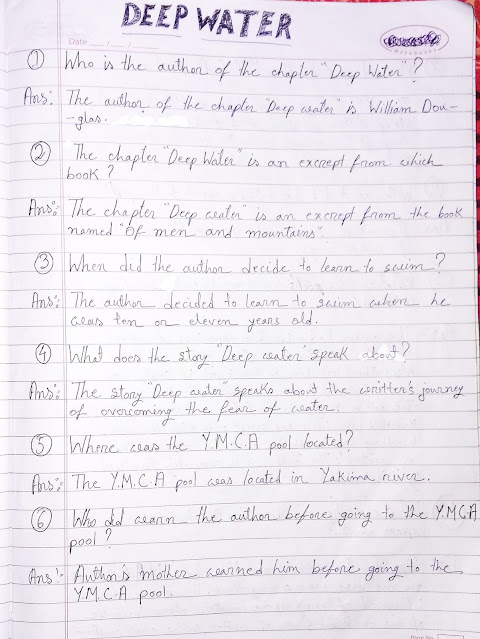 DEEP WATER
Date
① Who is the author of the chapter "Deep Water"?
Ans: The author of the chapter "Deep water" is William Dou-
-glas.
② The chapter "Deep Water" is an excrept from which
book?
Ans: The chapter "Deep water" is an excrept from the book
named "Of men and mountains".
③ When did the author decide to learn to swim?
Ans: The author decided to learn to swim when he
was ten or eleven years old.
④ What does the story "Deep water" speak about?
Ans: The story "Deep water" speaks about the writter's journey
of overcoming the fear of water.
⑤ Where was the Y.M.C.A pool located?
Ans: The Y.M.C.A pool was located in Yakima river.
⑥ Who did warn the author before going to the Y.M.C.A
pool?
Ans:- Author's mother warned him before going to the
Y.M.C.A pool.
Page No.